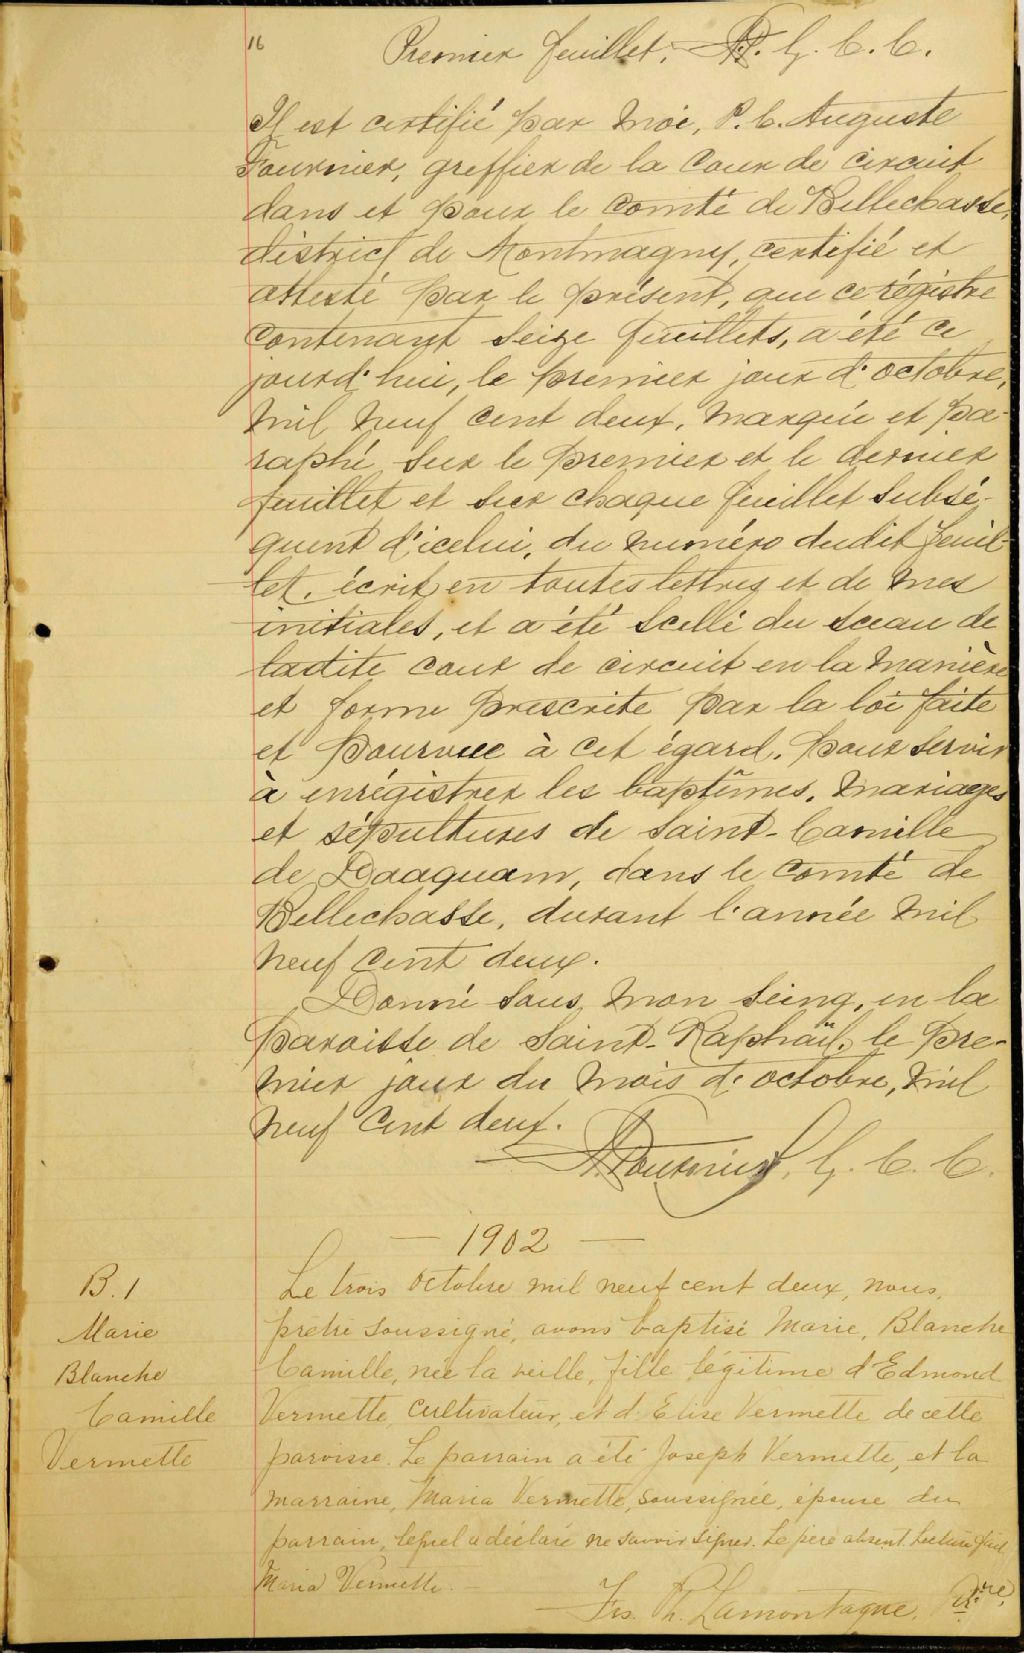 16
Premier feuillet, A.F. G. C. C.
Il est certifié par moi, P. C. Auguste
Fournier, greffier de la Cour de circuit
dans et pour le comté de Bellechasse,
district de Montmagny, certifié et
attesté par le présent, que ce régistre
contenant seize feuillets, a été ce
jourd'hui, le premier jour d'octobre,
mil neuf cent deux, marqué et pa-
raphé sur le premier et le dernier
feuillet et sur chaque feuillet subsé-
quent d'icelui, du numéro dudit feuil-
let, écrit en toutes lettres et de mes
initiales, et a été scellé du sceau de
ladite cour de circuit en la manière
et forme prescrite par la loi faite
et pourvue à cet égard, pour servir
à enrégistrer les baptêmes, mariages
et sépultures de Saint-Camille
de Daaquam, dans le comté de
Bellechasse, durant l'année mil
neuf cent deux.
Donné sous mon seing, en la
paroisse de Saint-Raphaël, le pre-
mier jour du mois d'octobre, mil
neuf cent deux.
A Fournier, G. C. C.
— 1902 —
B. 1
Marie
Blanche
Camille
Vermette
Le trois octobre mil neuf cent deux, nous,
prêtre soussigné, avons baptisé Marie, Blanche
Camille, née la veille, fille légitime d'Edmond
Vermette, cultivateur, et d'Elise Vermette de cette
paroisse. Le parrain a été Joseph Vermette, et la
marraine, Maria Vermette, soussignée, épouse du
parrain, lequel a déclaré ne savoir signer. Le père absent. Lecture faite
Maria Vermette. —
Frs. Ph. Lamontagne, Ptre,